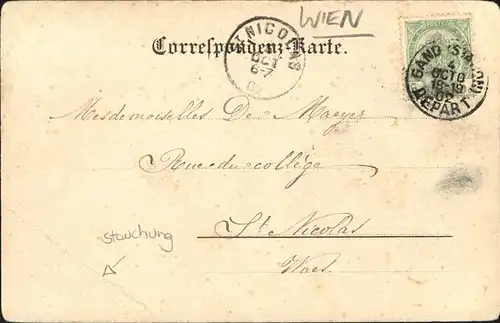 WIEN
Correspondenz-Karte.
ST NICOLAS
OCT
6-7
02
GAND (ST
4
OCTO
18-19
DEPART
Mesdemoiselles De Maeyer
Rue du collège
St Nicolas
Waes.
Stauchung